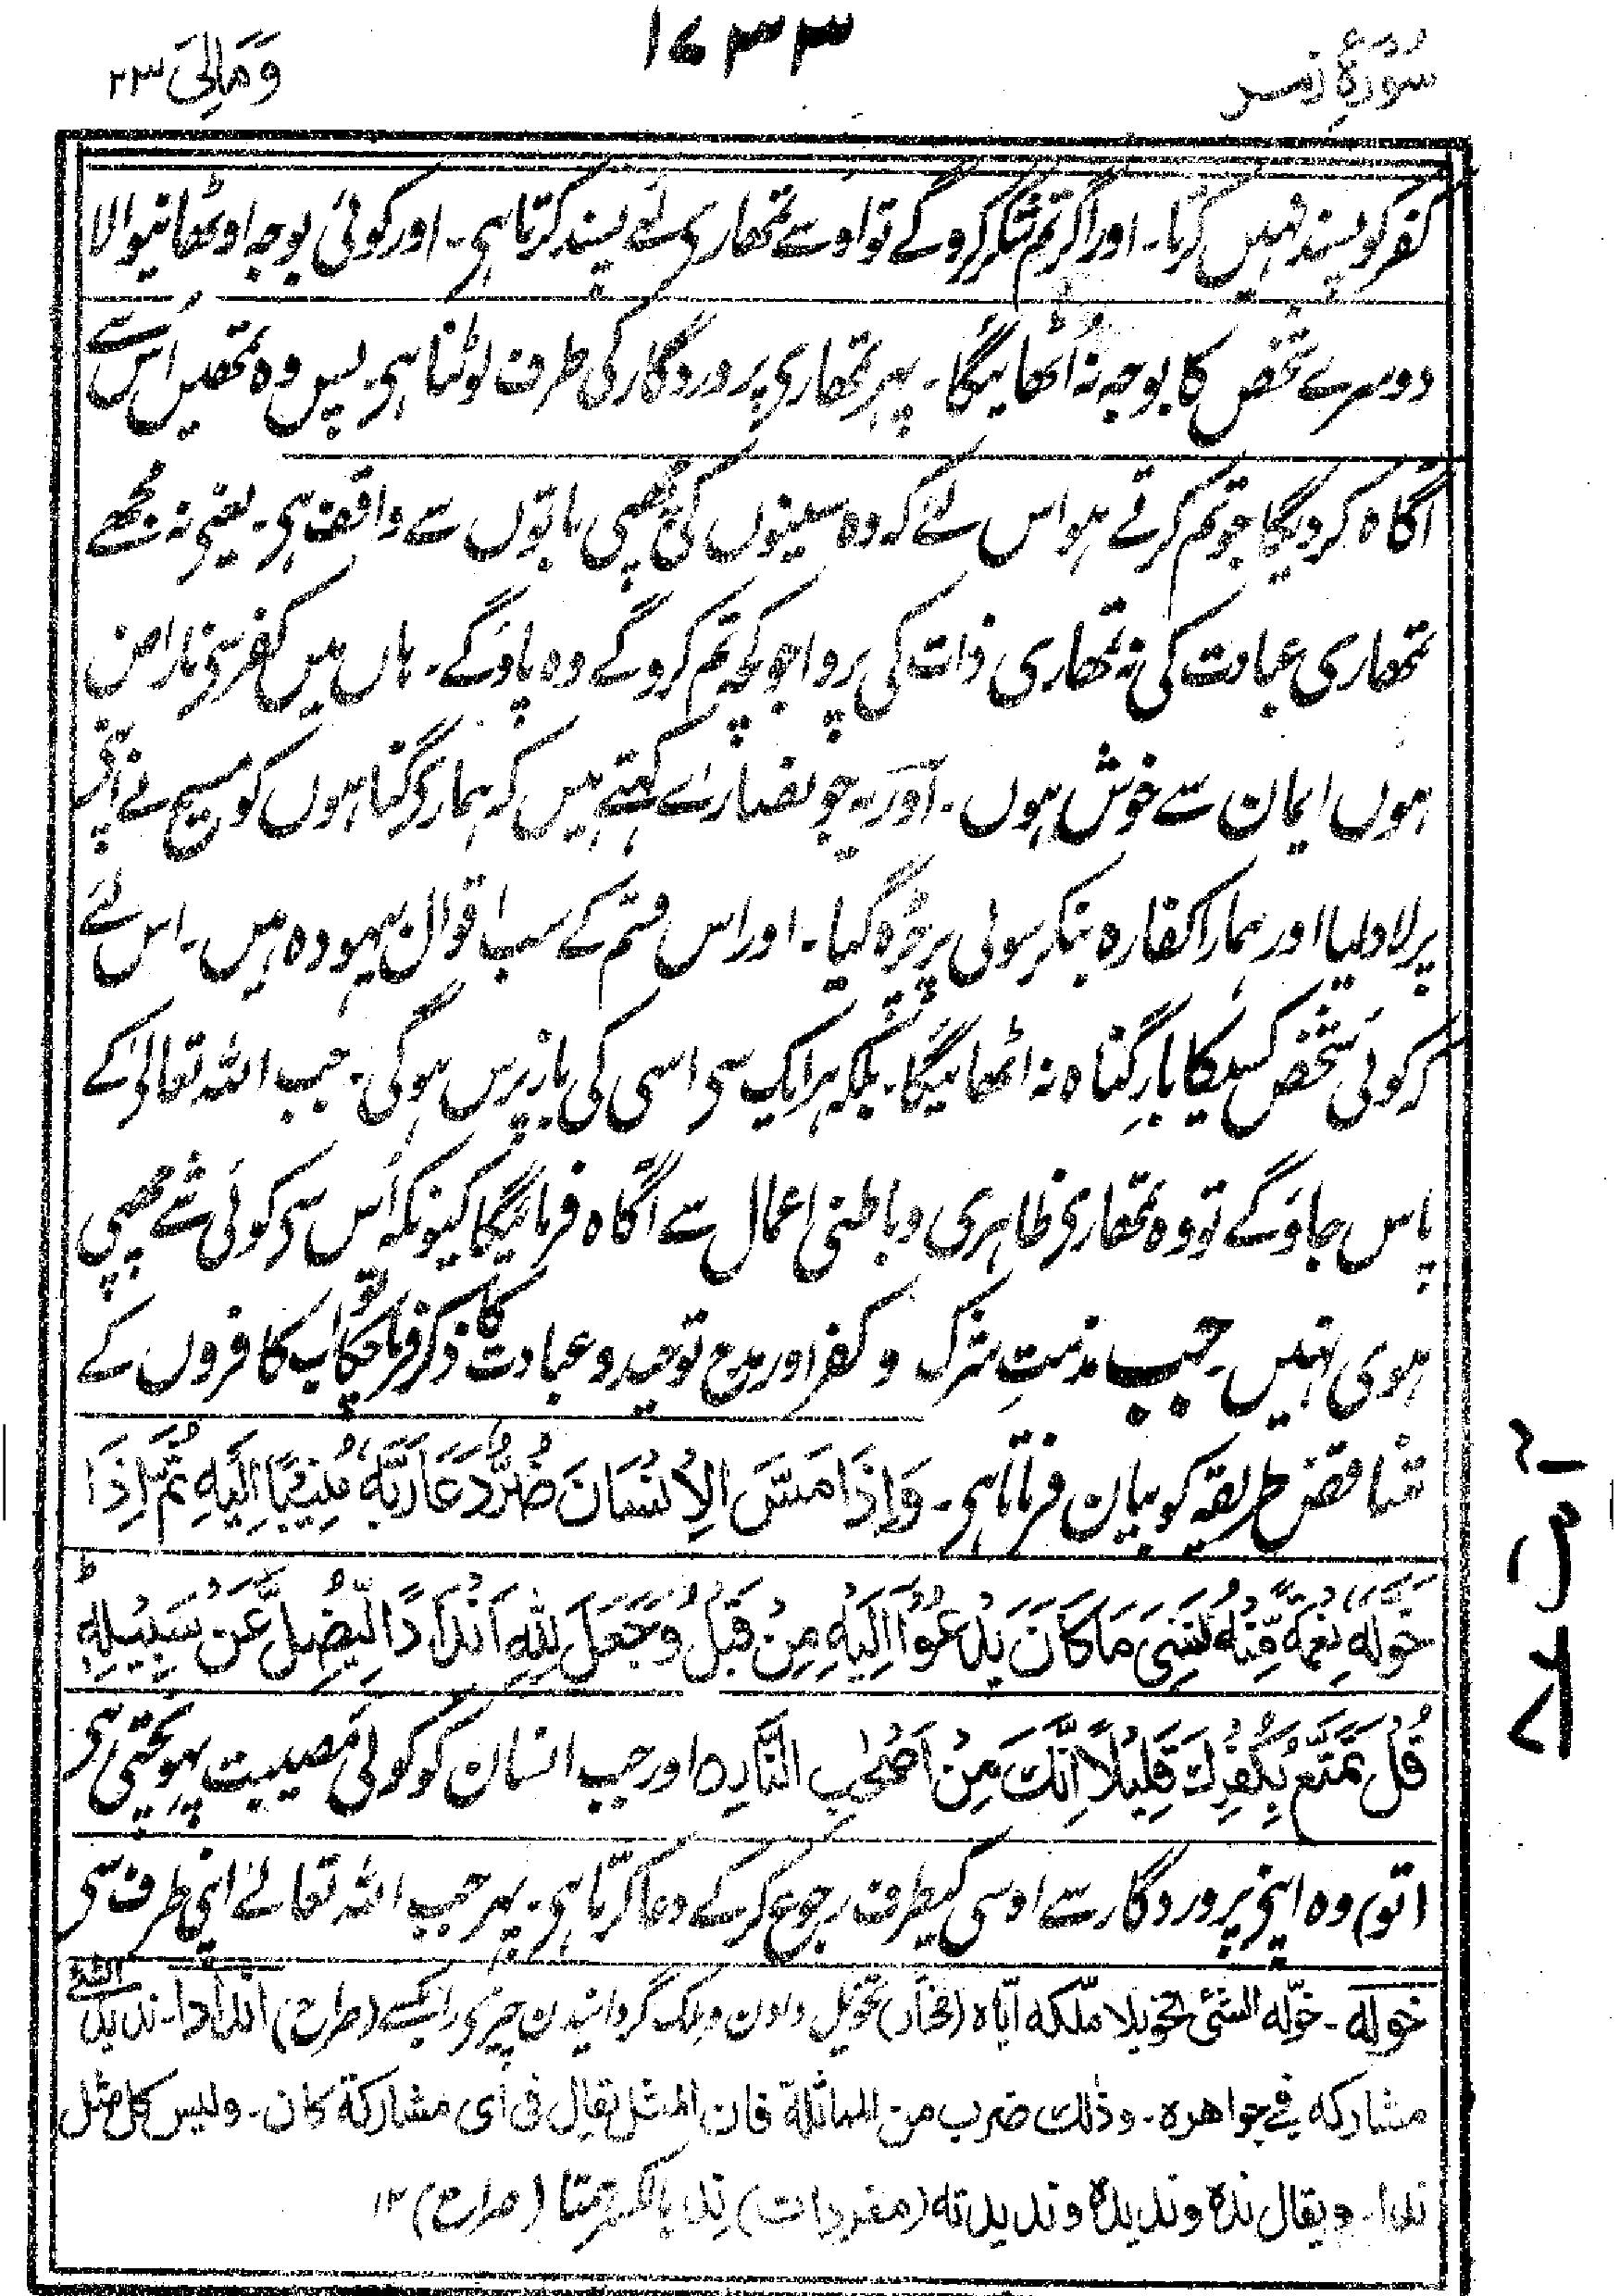 سُوْرَۃُ زمر
۱۷۳۳
وَمَالِیَ ۲۳
کفر کو پسند نہیں کرتا۔ اور اگر تم شکر کروگے تو اوسے تمھاری لئے پسند کرتا ہی۔ اور کوئی بوجہ اوٹھانیوالا
دوسرے شخص کا بوجہ نہ اُٹھائیگا۔ پہر تمھاری پروردگار کی طرف لوٹنا ہی۔ پس وہ تمھیں اُس سے
آگاہ کر دیگا جو تم کرتے ہو اس لئے کہ وہ سینوں کی چھپی باتوں سے واقف ہی۔ یعنی نہ مجھے
تمھاری عبادت کی نہ تمھاری ذات کی پروا جو کچھ تم کروگے وہ پاؤگے۔ ہاں میں کفر سی ناراض
ہوں ایمان سے خوش ہوں۔ اَور یہ جو نصاریٰ کہتے ہیں کہ ہماری گناہوں کو مسیح نے اپنی
پر لاد لیا اور ہمارا کفارہ بنکر سولی پر چڑہ گیا۔ اور اس قسم کے سب اقوال بیہودہ ہیں۔ اس لئے
کہ کوئی شخص کسیکا بارِ گناہ نہ اٹھائیگا۔ بلکہ ہر ایک سی اسی کی باز پرس ہوگی۔ جب اللہ تعالیٰ کے
پاس جاؤگے تو وہ تمھاری ظاہری و باطنی اعمال سے آگاہ فرمائیگا کیونکہ اُس سی کوئی شے چھپی
ہوی نہیں۔ جب مذمتِ شرک و کفر اور مدح توحید و عبادت کا ذکر فرما چکا تو اب کافروں کے
تناقض طریقہ کو بیان فرماتا ہی۔ وَاِذَا مَسَّ الْاِنْسَانَ ضُرٌّ دَعَا رَبَّهٗ مُنِیْبًا اِلَیْهِ ثُمَّ اِذَا
خَوَّلَهٗ نِعْمَةً مِّنْهُ نَسِیَ مَا كَانَ یَدْعُوْۤا اِلَیْهِ مِنْ قَبْلُ وَجَعَلَ لِلّٰهِ اَنْدَادًا لِّیُضِلَّ عَنْ سَبِیْلِهٖ ؕ
قُلْ تَمَتَّعْ بِكُفْرِكَ قَلِیْلًا اِنَّكَ مِنْ اَصْحٰبِ النَّارِ ہ اور جب انسان کو کوئی مصیبت پہونچتی ہی
(تو) وہ اپنی پروردگار سے اوسی کیطرف رجوع کرکے دعا کرتا ہی۔ پہر جب اللہ تعالیٰ اپنی طرف سی
خوله۔ خوّله الشئ تخویلا ملّکه ایّاه (مختار) تخویل دادن و ملک گردانیدن چیزی را بکسے (صراح) اندادا۔ ندید الشئ
مشارکه فی جواهره۔ وذٰلک ضرب من المماثلة فان المثل یقال فی أی مشارکة کان۔ ولیس کل مثل
ندا۔ ویقال ندہ وندیده وندیدته (مفردات) نِد بالکسر ہمتا (صراح) ۱۲